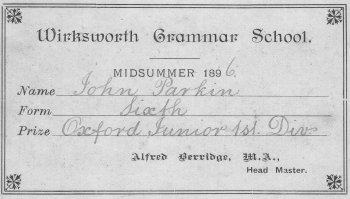 Wirksworth Grammar School.
MIDSUMMER 1896.
Name John Parkin
Form Sixth
Prize Oxford Junior 1st. Div
Alfred Berridge, M.A.,
Head Master.